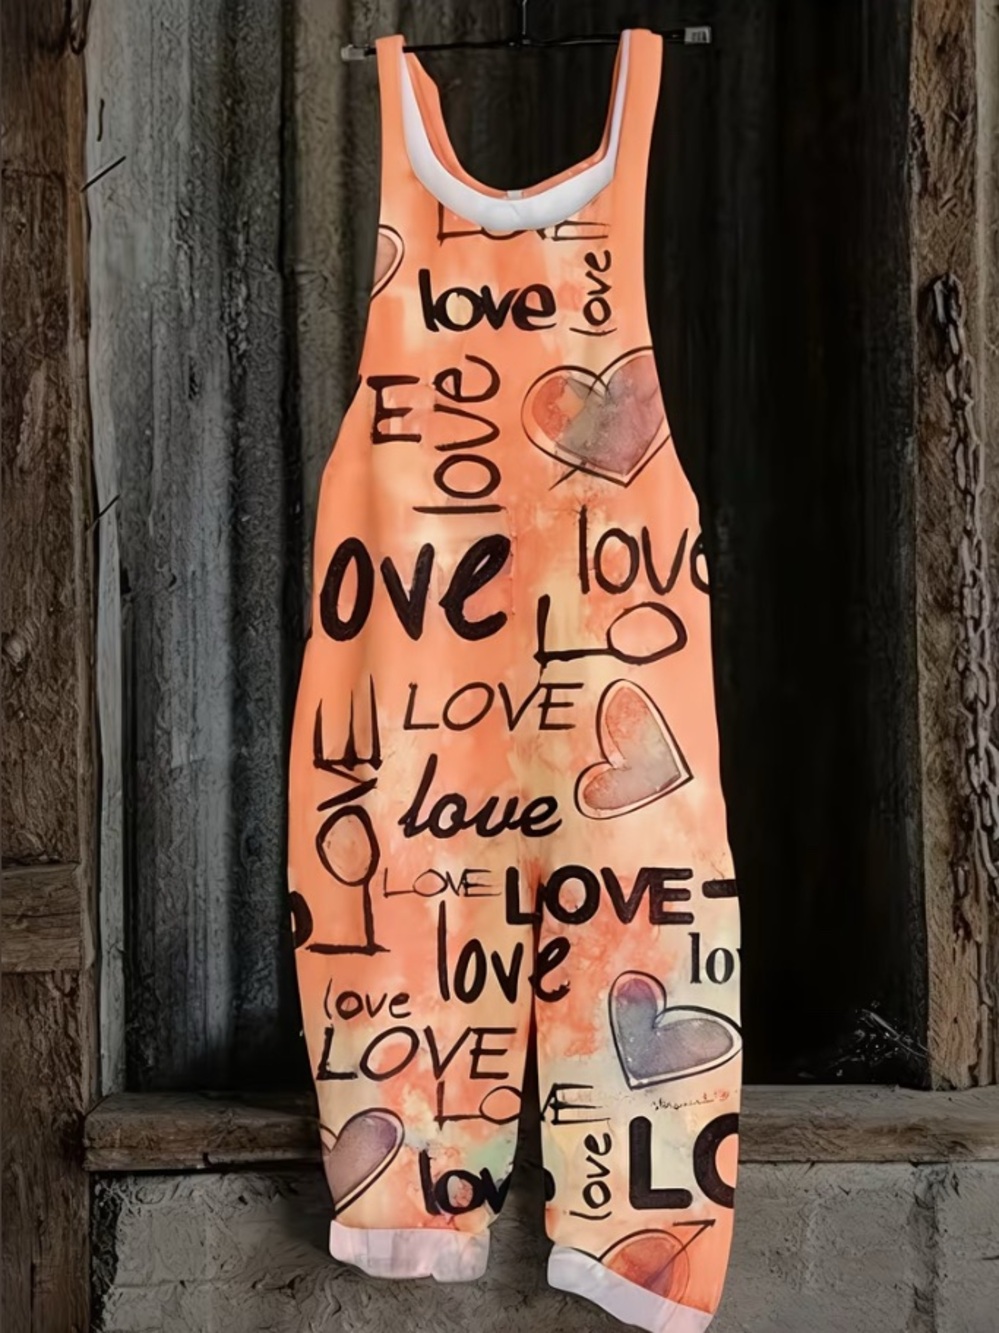 love
love
E
love
ove
love
LO
LOVE
LOVE
love
LOVE
LOVE
love
lov
love
LOVE
LOVE
love
love
LO